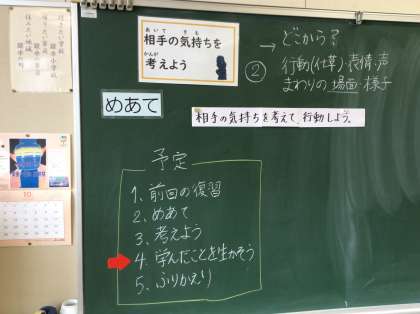 相手の気持ちを
あいて きも
考えよう
かんが
→ どこから?
② 行動(仕草)・表情・声
まわりの場面・様子
めあて
相手の気持ちを考えて、行動しよう。
予定
1. 前回の復習
2. めあて
3. 考えよう
4. 学んだことを生かそう
5. ふりかえり
10